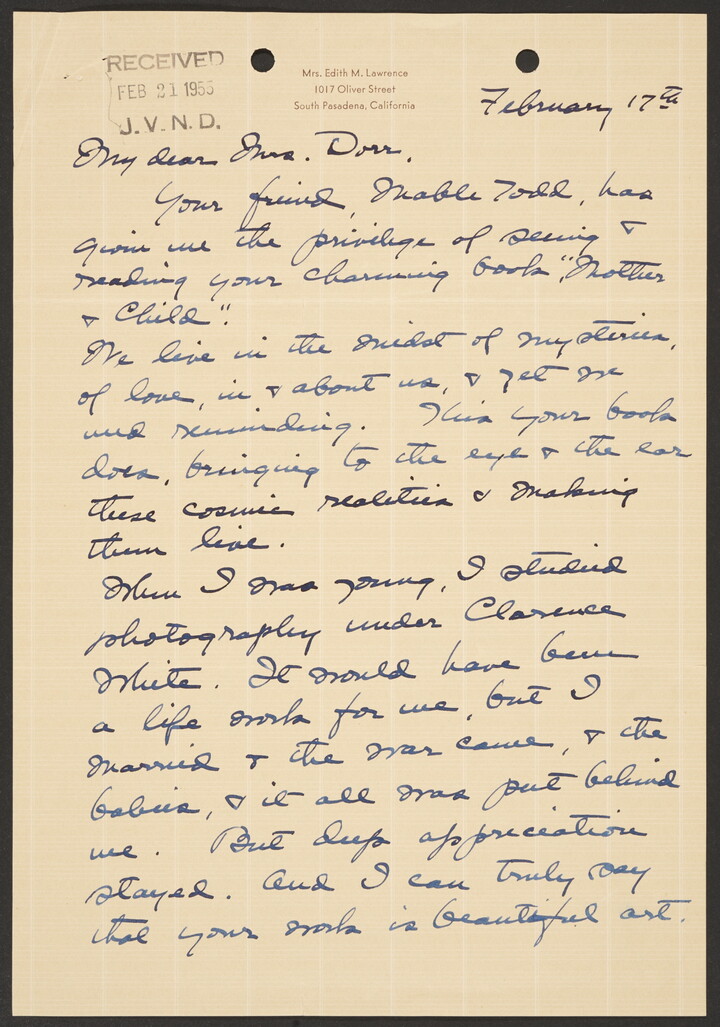 RECEIVED
FEB 21 1955
J. V. N. D.
Mrs. Edith M. Lawrence
1017 Oliver Street
South Pasadena, California
February 17th
My dear Mrs. Dorr,
Your friend, Mable Todd, has
given me the privilege of seeing &
reading your charming book, "Mother
& Child".
We live in the midst of mysteries,
of love, in & about us, & yet we
need reminding. This your book
does, bringing to the eye & the ear
these cosmic realities & making
them live.
When I was young, I studied
photography under Clarence
White. It would have been
a life work for me, but I
married & the war came, & the
babies, & it all was put behind
me. But deep appreciation
stayed. And I can truly say
that your work is beautiful art.